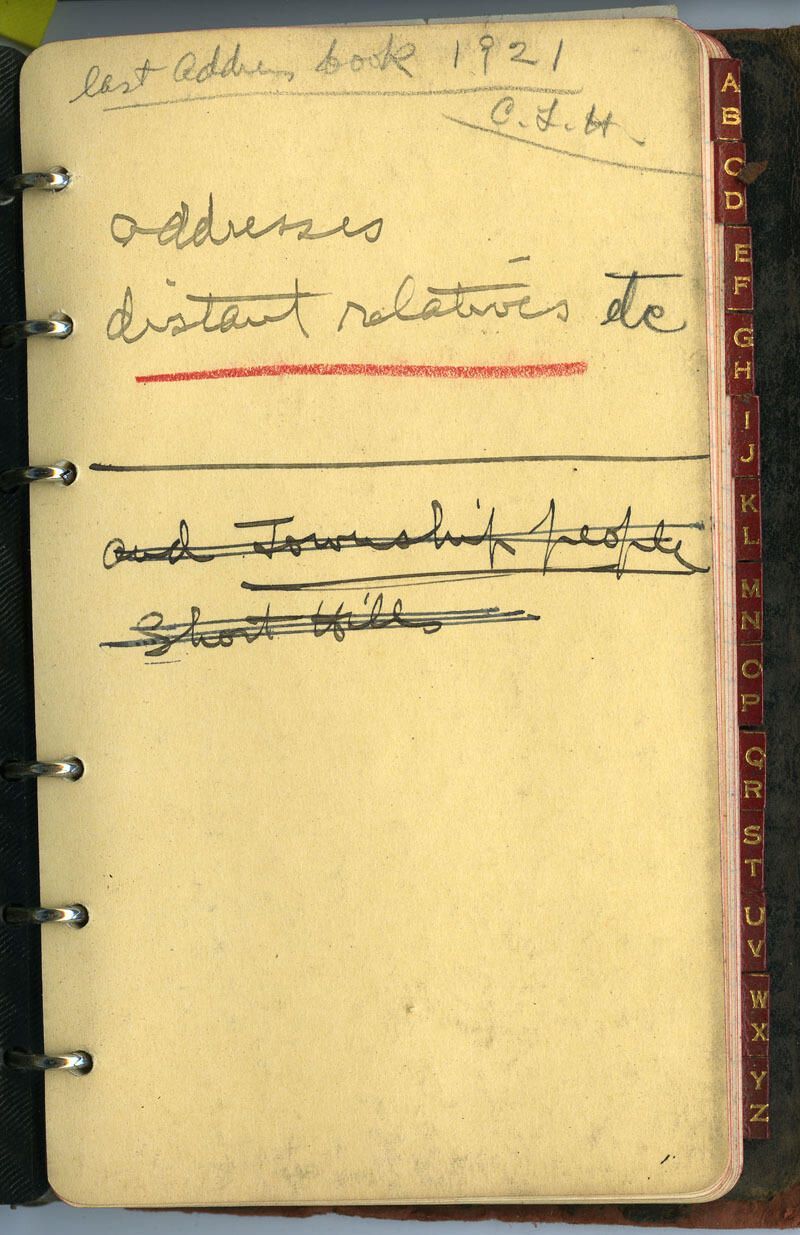 last address book 1921
C. L. H.
addresses
distant relatives etc
and Township people
Short Hills
A
B
C
D
E
F
G
H
I
J
K
L
M
N
O
P
Q
R
S
T
U
V
W
X
Y
Z